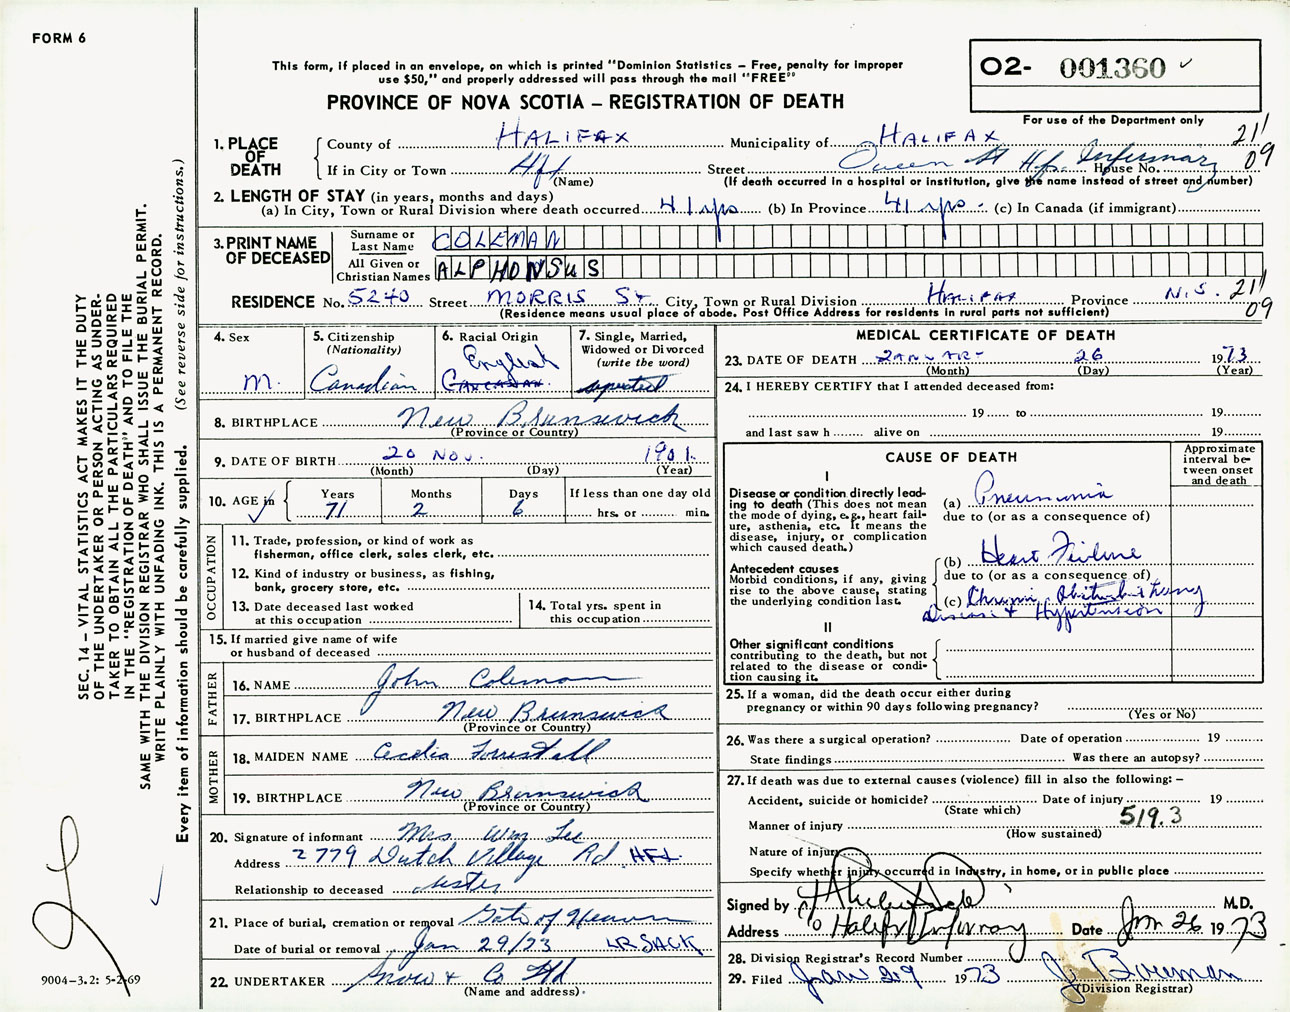 FORM 6
This form, if placed in an envelope, on which is printed "Dominion Statistics – Free, penalty for improper
use $50," and properly addressed will pass through the mail "FREE"
PROVINCE OF NOVA SCOTIA – REGISTRATION OF DEATH
O2- 001360 ✓
For use of the Department only
1. PLACE OF DEATH
County of HALIFAX Municipality of HALIFAX 21
If in City or Town Hfx Street Queen St Hfx. Infirmary House No. 09
(Name) (If death occurred in a hospital or institution, give the name instead of street and number)
2. LENGTH OF STAY (in years, months and days)
(a) In City, Town or Rural Division where death occurred 41 yrs (b) In Province 41 yrs. (c) In Canada (if immigrant)
3. PRINT NAME OF DECEASED
Surname or Last Name COLEMAN
All Given or Christian Names ALPHONSUS
RESIDENCE No. 5240 Street MORRIS St City, Town or Rural Division HALIFAX Province N.S. 21
(Residence means usual place of abode. Post Office Address for residents in rural parts not sufficient) 09
4. Sex
M.
5. Citizenship
(Nationality)
Canadian
6. Racial Origin
English
Canadian
7. Single, Married,
Widowed or Divorced
(write the word)
8. BIRTHPLACE New Brunswick
(Province or Country)
9. DATE OF BIRTH 20 Nov. 1901.
(Month) (Day) (Year)
10. AGE in
Years Months Days If less than one day old
71 2 6 hrs. or min.
OCCUPATION
11. Trade, profession, or kind of work as
fisherman, office clerk, sales clerk, etc.
12. Kind of industry or business, as fishing,
bank, grocery store, etc.
13. Date deceased last worked
at this occupation
14. Total yrs. spent in
this occupation
15. If married give name of wife
or husband of deceased
FATHER
16. NAME John Coleman
17. BIRTHPLACE New Brunswick
(Province or Country)
MOTHER
18. MAIDEN NAME Cecelia Forrestall
19. BIRTHPLACE New Brunswick
(Province or Country)
20. Signature of informant Mrs Wm Lee
Address 2779 Dutch Village Rd HFX
Relationship to deceased sister
21. Place of burial, cremation or removal Gate of Heaven
Date of burial or removal Jan 29/73 LR SACK
22. UNDERTAKER Snow & Co Ltd
(Name and address)
MEDICAL CERTIFICATE OF DEATH
23. DATE OF DEATH JANUARY 26 1973
(Month) (Day) (Year)
24. I HEREBY CERTIFY that I attended deceased from:
19 to 19
and last saw h alive on 19
CAUSE OF DEATH
Approximate
interval be-
tween onset
and death
I
Disease or condition directly lead-
ing to death (This does not mean
the mode of dying, e.g., heart fail-
ure, asthenia, etc. It means the
disease, injury, or complication
which caused death.)
(a) Pneumonia
due to (or as a consequence of)
Antecedent causes
Morbid conditions, if any, giving
rise to the above cause, stating
the underlying condition last.
(b) Heart Failure
due to (or as a consequence of)
(c) Chronic Obstructive Lung
Disease & Hypertension
II
Other significant conditions
contributing to the death, but not
related to the disease or condi-
tion causing it.
25. If a woman, did the death occur either during
pregnancy or within 90 days following pregnancy?
(Yes or No)
26. Was there a surgical operation? Date of operation 19
State findings Was there an autopsy?
27. If death was due to external causes (violence) fill in also the following: –
Accident, suicide or homicide? Date of injury 19
(State which)
Manner of injury 519.3
(How sustained)
Nature of injury
Specify whether injury occurred in Industry, in home, or in public place
Signed by M.D.
Address c/o Halifax Infirmary Date Jan 26 1973
28. Division Registrar's Record Number
29. Filed Jan 29 1973
(Division Registrar)
SEC. 14 – VITAL STATISTICS ACT MAKES IT THE DUTY
OF THE UNDERTAKER OR PERSON ACTING AS UNDER-
TAKER TO OBTAIN ALL THE PARTICULARS REQUIRED
IN THE "REGISTRATION OF DEATH" AND TO FILE THE
SAME WITH THE DIVISION REGISTRAR WHO SHALL ISSUE THE BURIAL PERMIT.
WRITE PLAINLY WITH UNFADING INK. THIS IS A PERMANENT RECORD.
Every item of information should be carefully supplied. (See reverse side for instructions.)
9004–3.2: 5-2-69